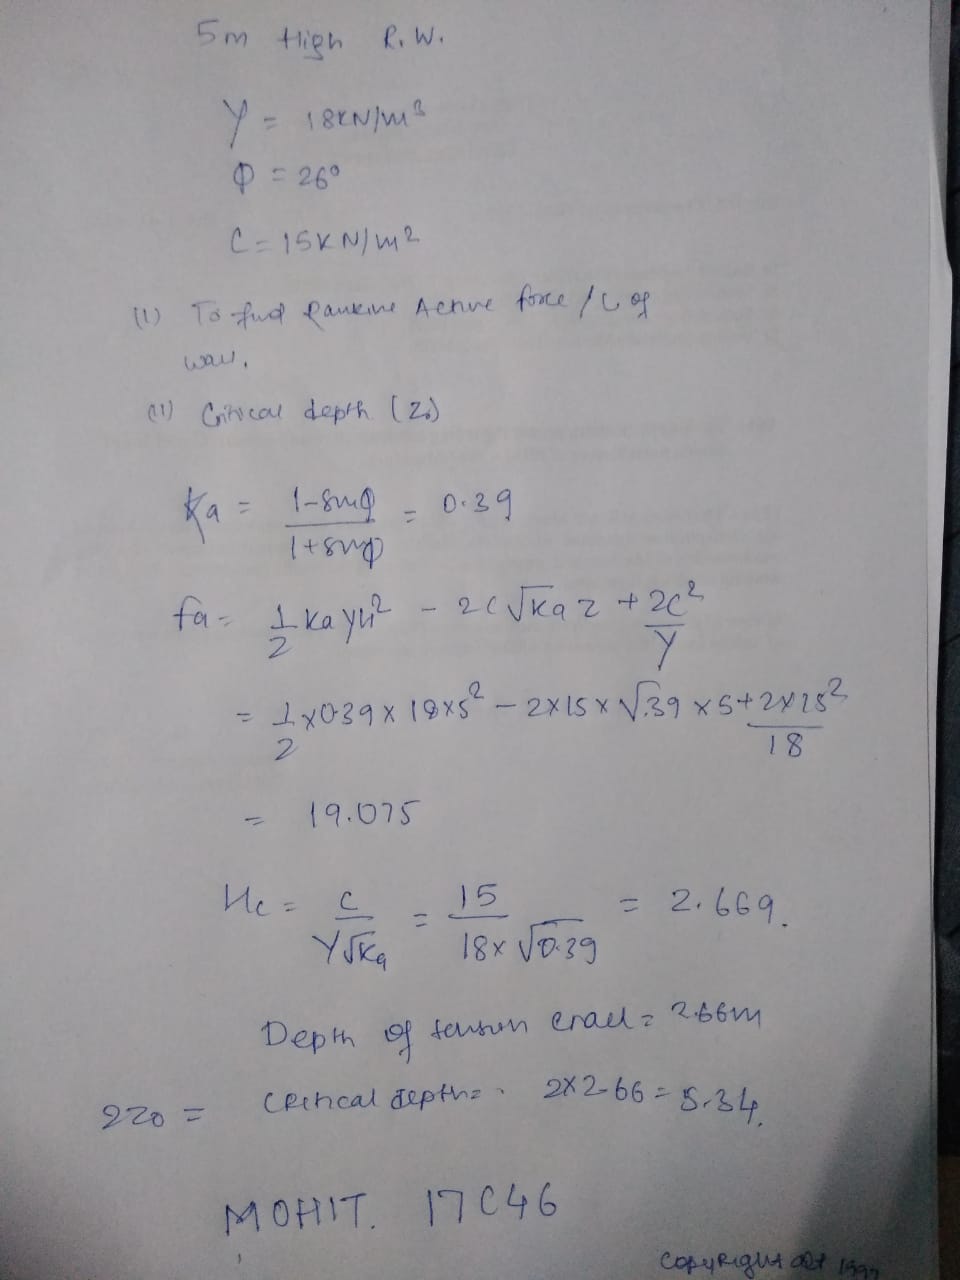 5m High R.W.
γ = 18KN/m³
Φ = 26°
C = 15KN/m²
(i) To find Rankine Active force / L of
wall.
(ii) Critical depth (Z₀)
Ka = 1-sinφ / 1+sinφ = 0.39
fa = 1/2 Ka γH² - 2C√Ka z + 2C²/γ
= 1/2 x 0.39 x 18x5² - 2x15x√.39 x5+ 2x15²/18
= 19.075
Hc = C/γ√Ka = 15/18x√0.39 = 2.669.
Depth of tension crack = 2.66m
2Z0 = Critical depth = 2x2.66 = 5.34.
MOHIT. 17C46
Copyright